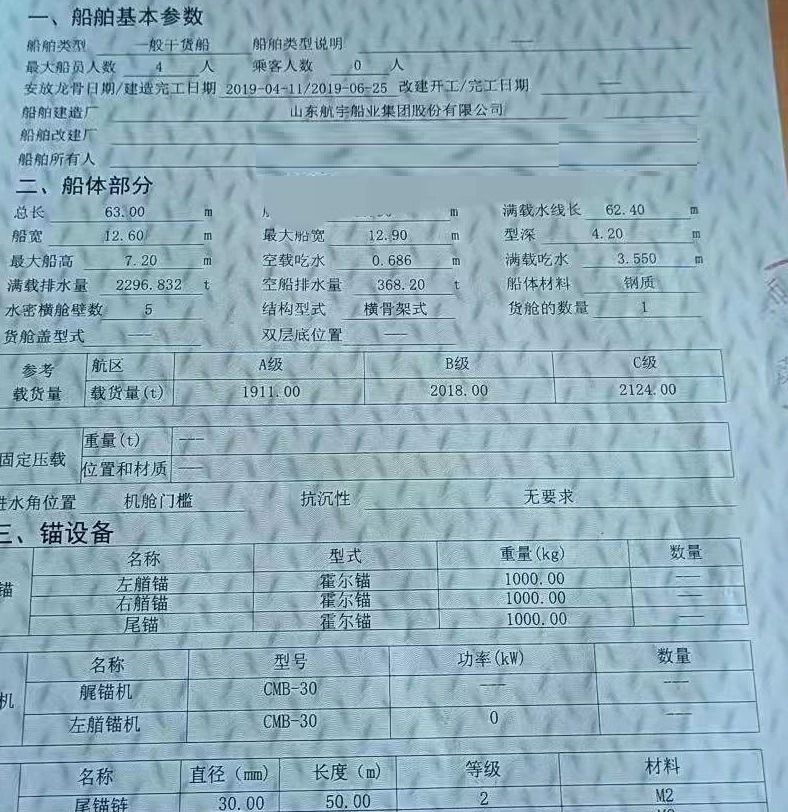 一、船舶基本参数
船舶类型 一般干货船 船舶类型说明 ---
最大船员人数 4 人 乘客人数 0 人
安放龙骨日期/建造完工日期 2019-04-11/2019-06-25 改建开工/完工日期 ---
船舶建造厂 山东航宇船业集团股份有限公司
船舶改建厂
船舶所有人
二、船体部分
总长 63.00 m m 满载水线长 62.40 m
船宽 12.60 m 最大船宽 12.90 m 型深 4.20 m
最大船高 7.20 m 空载吃水 0.686 m 满载吃水 3.550 m
满载排水量 2296.832 t 空船排水量 368.20 t 船体材料 钢质
水密横舱壁数 5 结构型式 横骨架式 货舱的数量 1
货舱盖型式 --- 双层底位置 ---
参考 航区 A级 B级 C级
载货量 载货量(t) 1911.00 2018.00 2124.00
固定压载 重量(t) ---
位置和材质 ---
进水角位置 机舱门槛 抗沉性 无要求
三、锚设备
名称 型式 重量(kg) 数量
锚 左艏锚 霍尔锚 1000.00 ---
右艏锚 霍尔锚 1000.00 ---
尾锚 霍尔锚 1000.00 ---
名称 型号 功率(kW) 数量
机 艉锚机 CMB-30 --- ---
左艏锚机 CMB-30 0 ---
名称 直径(mm) 长度(m) 等级 材料
尾锚链 30.00 50.00 2 M2